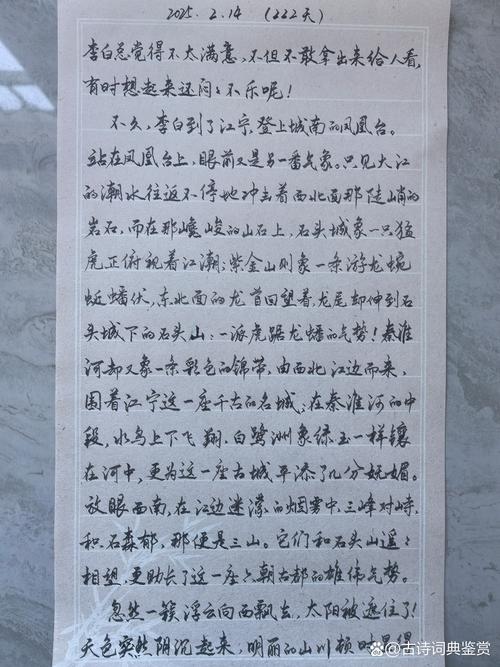 2025.2.14 (222天)
李白总觉得不太满意,不但不敢拿出来给人看,
有时想起来还闷々不乐呢!
不久,李白到了江宁,登上城南的凤凰台。
站在凤凰台上,眼前又是另一番气象。只见大江
的潮水往返不停地冲击着西北面那陡峭的
岩石,而在那巉峻的山石上,石头城象一只猛
虎正俯视着江潮;紫金山则象一条游龙蜿
蜒蟠伏,东北面的龙首回望着,龙尾却伸到石
头城下的石头山:一派虎踞龙蟠的气势!秦淮
河却又象一条彩色的锦带,由西北江边而来,
围着江宁这一座千古的名城;在秦淮河的中
段,水鸟上下飞翔,白鹭洲象绿玉一样镶
在河中,更为这一座古城平添了几分妩媚。
放眼西南,在江边迷濛的烟雾中,三峰对峙,
积石森郁,那便是三山。它们和石头山遥々
相望,更助长了这一座六朝古都的雄伟气势。
忽然一簇浮云向西飘去,太阳被遮住了!
天色突然阴沉起来,明丽的山川顿时显得
@古诗词典鉴赏